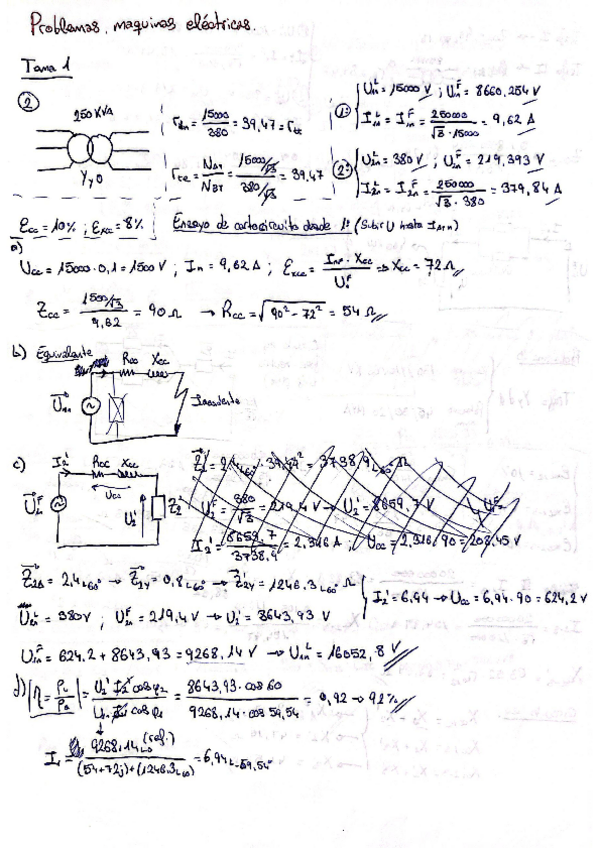 Problemas, maquinas eléctricas.
Tema 1
②
250 KVA
Yy0
rtn = 15000/380 = 39,47 = rtt
rcc = NAT/NBT = (15000/√3)/(380/√3) = 39,47
1º: U1n^L = 15000 V ; U1n^F = 8660,254 V
I1n^L = I1n^F = 250000/(√3 · 15000) = 9,62 A
2º: U2n^L = 380 V ; U2n^F = 219,393 V
I2n^L = I2n^F = 250000/(√3 · 380) = 379,84 A
Ecc = 10% ; EXcc = 8%
Ensayo de cortocircuito desde 1º (Subir U hasta I1n)
a)
Ucc = 15000 · 0,1 = 1500 V ; In = 9,62 A ; EXcc = (In^F · Xcc)/Un^F ⇒ Xcc = 72 Ω
Zcc = (1500/√3)/9,62 = 90 Ω → Rcc = √(90² - 72²) = 54 Ω
b) Equivalente
Rcc Xcc
U1n
c)
I2' Rcc Xcc
Ucc
U1n^F
U2'
Z2'
Z2' = 2,4∟60° · 39,47² = 3738,9∟60° Ω
U^F = 380/√3 = 219,4 V → U2' = 8659,7 V
I2' = 8659,7/3738,9 = 2,316 A ; Ucc = 2,316 · 90 = 208,45 V
Z2Δ = 2,4∟60° → Z2Y = 0,8∟60° → Z2Y' = 1246,3∟60° Ω
I2' = 6,94 → Ucc = 6,94 · 90 = 624,2 V
= 380 V ; U2n^F = 219,4 V → U2' = 8643,93 V
U1n^F = 624,2 + 8643,93 = 9268,14 V → U1n^L = 16052,8 V
d) |η = P2/P1| = (U2' I2' cos φ2)/(U1 I2' cos φ1) = (8643,93 · cos 60)/(9268,14 · cos 59,54) = 0,92 → 92%
I1 = 9268,14∟0 (ref.)/((54+72j)+(1246,3∟60)) = 6,94∟-59,54°